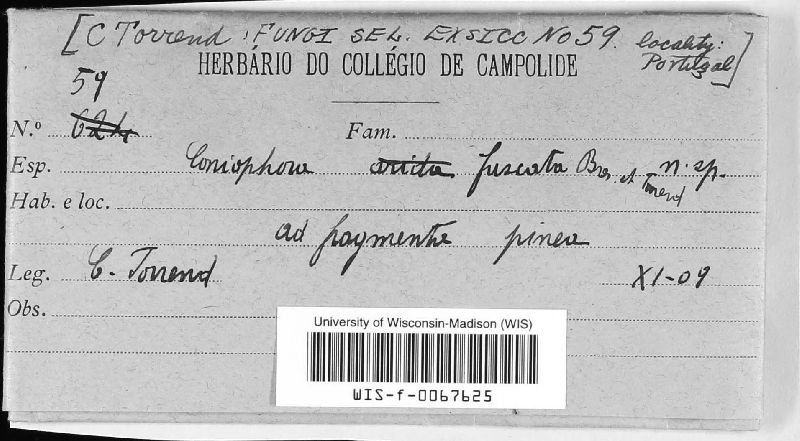 [C Torrend: FUNGI SEL. EXSICC No 59. locality: Portugal]
HERBÁRIO DO COLLÉGIO DE CAMPOLIDE
59
N.º 624 Fam.
Esp. Coniophora arida fuscata Bres et Torrend n. sp.
Hab. e loc.
ad fragmenta pinea
Leg. C. Torrend XI-09
Obs.
University of Wisconsin-Madison (WIS)
WIS-f-0067625